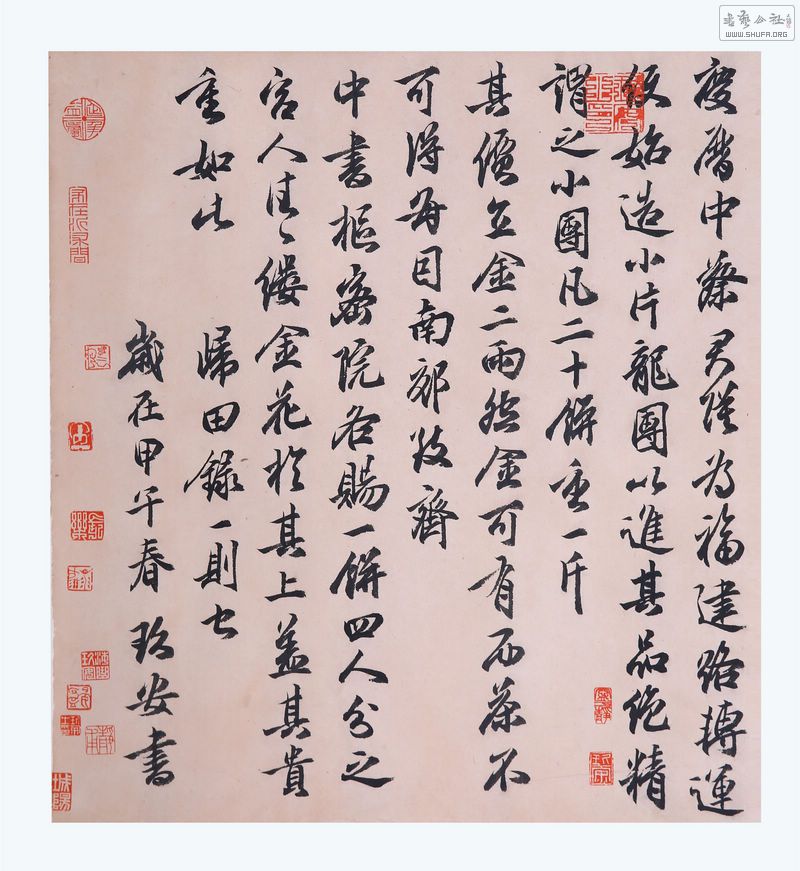 慶曆中蔡君謨为福建路轉運
使始造小片龍團以進其品絶精
謂之小團凡二十餅重一斤
其價直金二兩然金可有而茶不
可得每因南郊致齋
中書樞密院各賜一餅四人分之
宮人往〻縷金花於其上蓋其貴
重如此
歸田錄一則也
歲在甲午春 安書
書藝公社
WWW.SHUFA.ORG